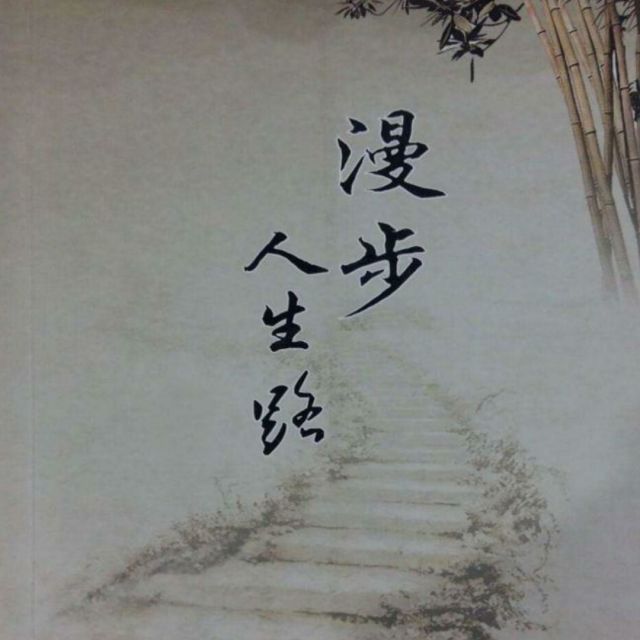 漫步
人生路